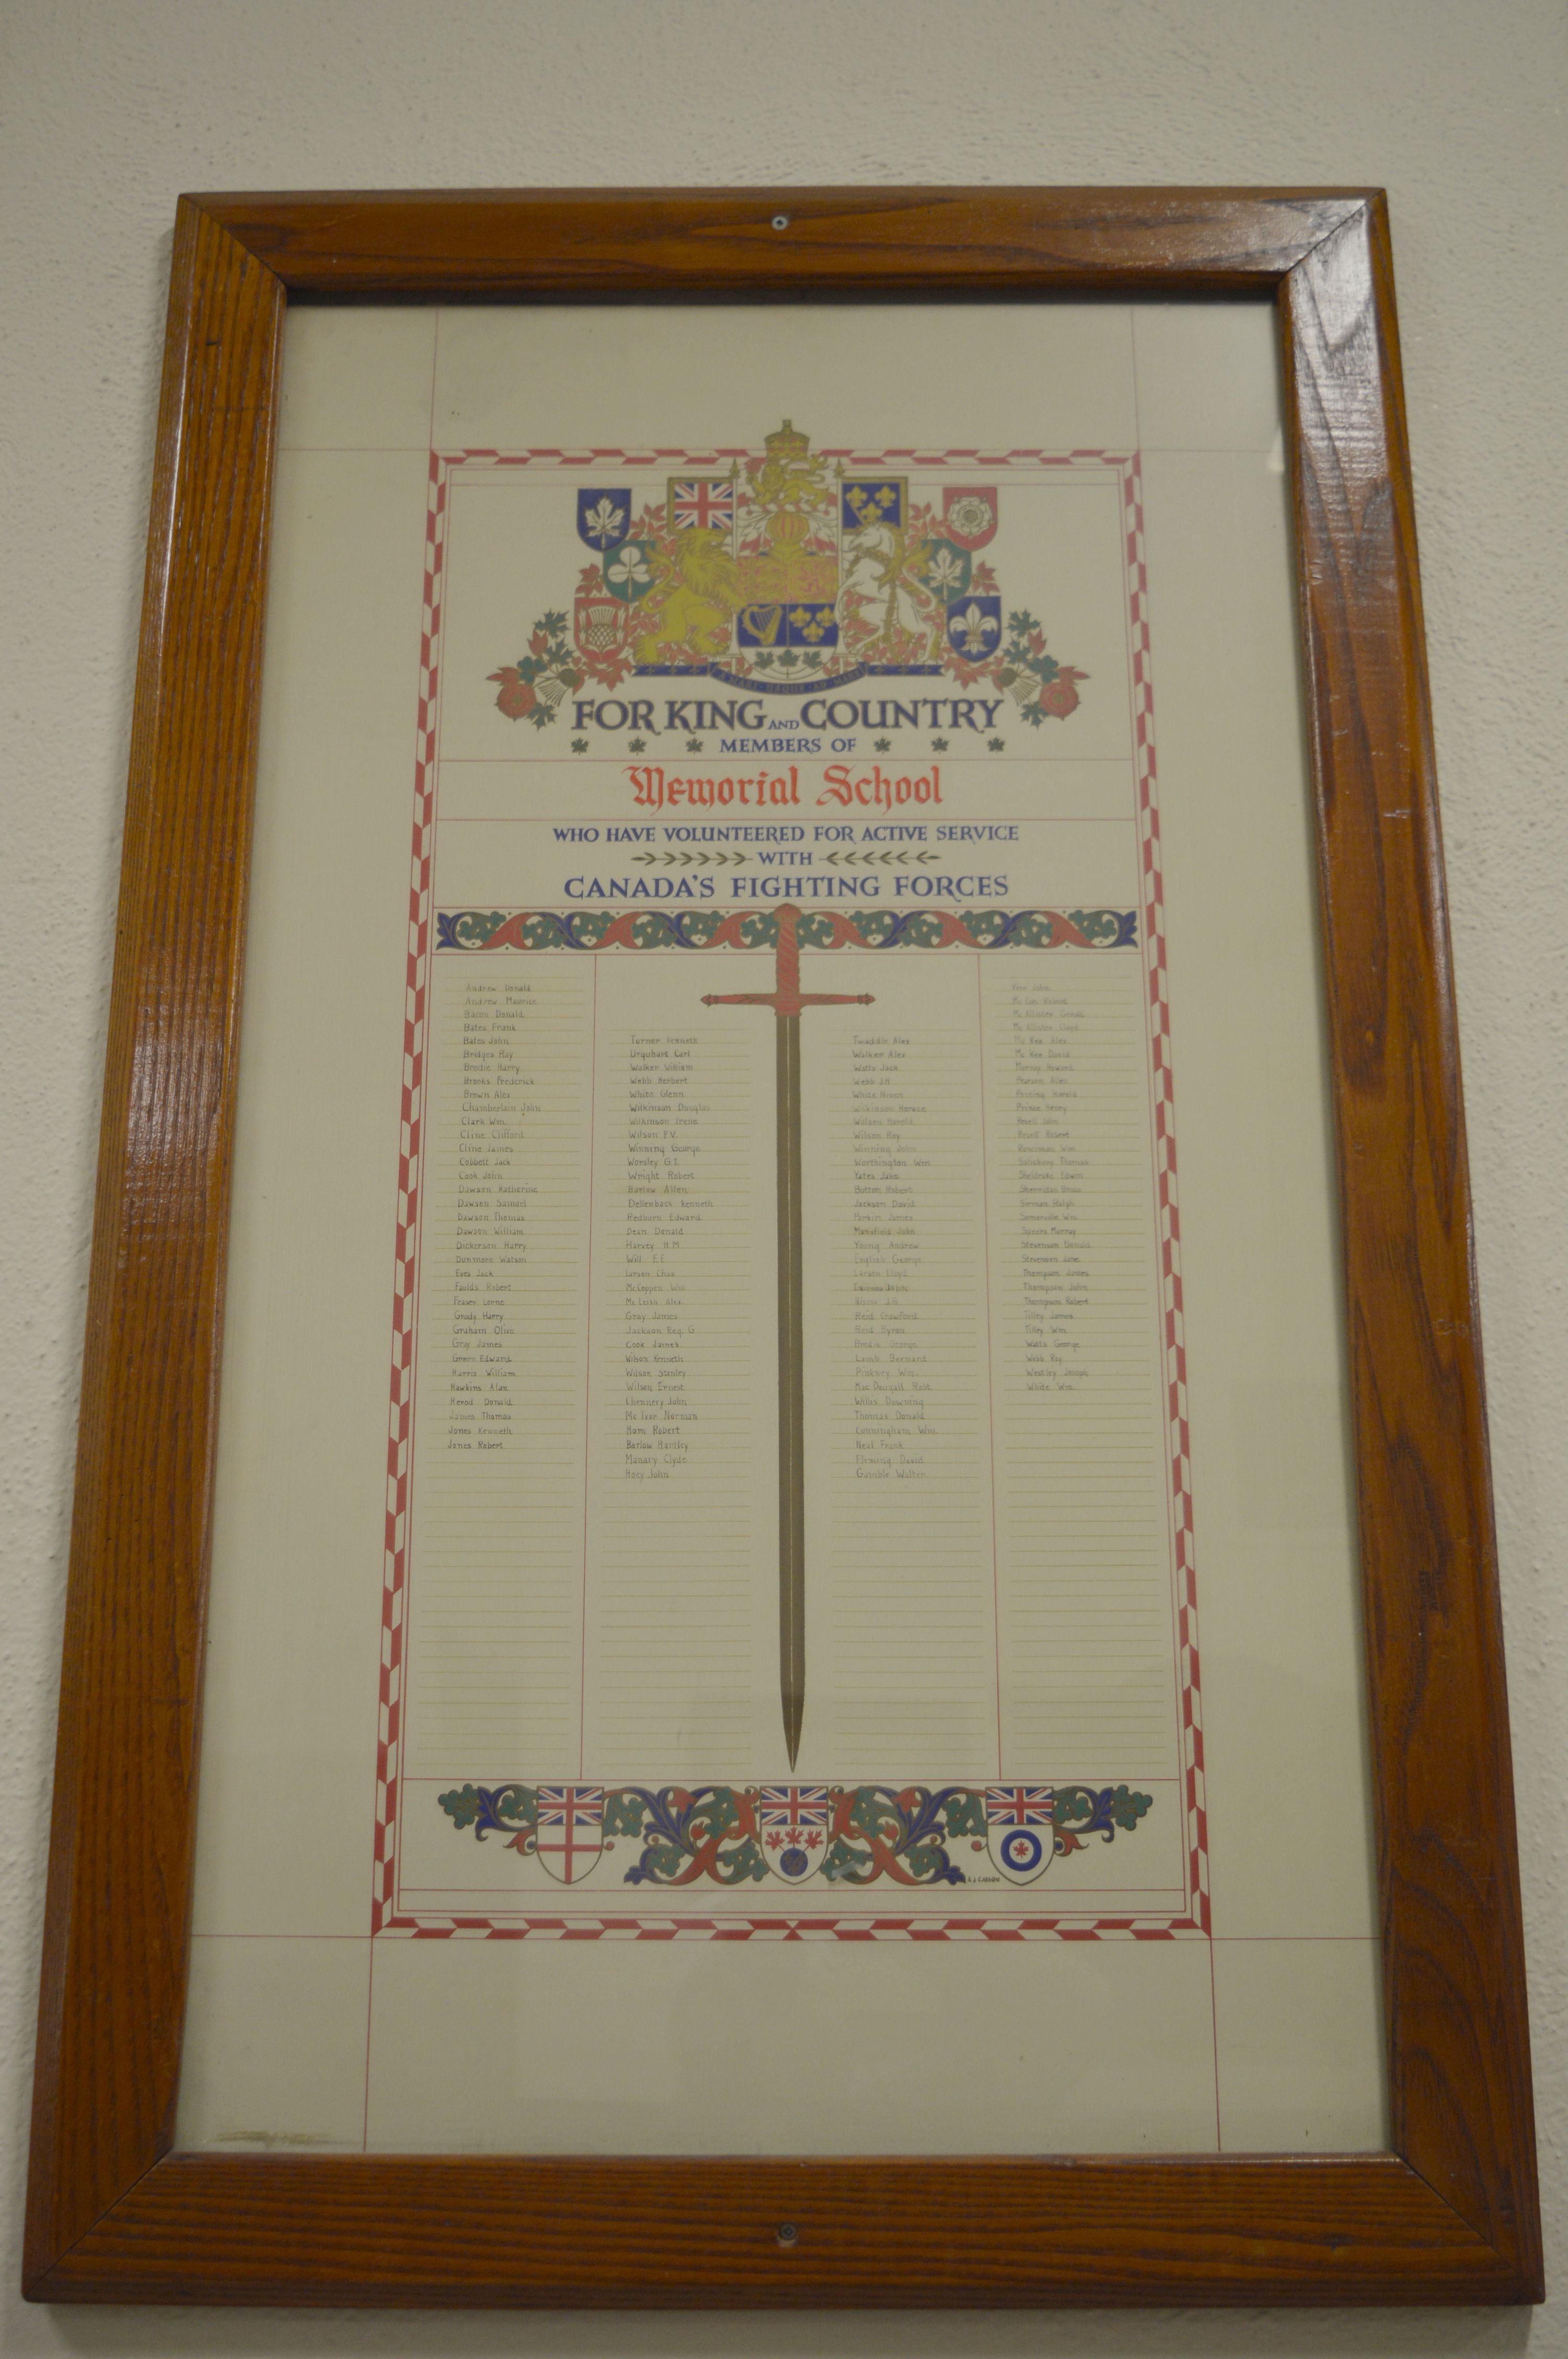 A MARI USQUE AD MARE
FOR KING AND COUNTRY
MEMBERS OF
Memorial School
WHO HAVE VOLUNTEERED FOR ACTIVE SERVICE
WITH
CANADA'S FIGHTING FORCES
Andrew Donald
Andrew Maurice
Bacon Donald
Bates Frank
Bates John
Bridges Ray
Brodie Harry
Brooks Frederick
Brown Alex
Chamberlain John
Clark Wm.
Cline Clifford
Cline James
Cobbett Jack
Cook John
Dawson Katherine
Dawson Samuel
Dawson Thomas
Dawson William
Dickerson Harry
Dunmore Watson
Eves Jack
Faulds Robert
Fraser Lorne
Grady Harry
Graham Olive
Gray James
Green Edward
Harris William
Hawkins Alan
Herod Donald
James Thomas
Jones Kenneth
Jones Robert
Turner Kenneth
Urquhart Carl
Walker William
Webb Herbert
White Glenn
Wilkinson Douglas
Wilkinson Irene
Wilson F.V.
Winning George
Worsley G.T.
Wright Robert
Barlow Allen
Dellenback Kenneth
Redburn Edward
Dean Donald
Harvey H.M.
Will F.E.
Larson Chas
McCoppen Wm.
McLeish Alex.
Gray James
Jackson Reg. G.
Cook James
Wilson Kenneth
Wilson Stanley
Wilson Ernest
Chennery John
Mc Iver Norman
Ham Robert
Barlow Hartley
Manary Clyde
Hoey John
Twaddle Alex
Walker Alex
Watts Jack
Webb J.H.
White Nixon
Wilkinson Horace
Wilson Harold
Wilson Roy
Winning John
Worthington Wm.
Yates Jake
Button Robert
Jackson David
Parkin James
Mansfield John
Young Andrew
English George
Larson Lloyd
J.G.
Reid Crawford
Reid Byron
Brodie George
Lamb Bernard
Pinkney Wm.
MacDougall Robt.
Willis Downing
Thomas Donald
Cunningham Wm.
Neal Frank
Fleming David
Gamble Walter
John
Mc Coe
Mc Allister Gerald
Mc Allister Lloyd
Mc Kee Alex
Mc Kee David
Murray Howard
Pearson Allen
Harold
Prince Henry
Revell John
Revell Robert
Wm.
Salisbury Thomas
Edwin
Sherridan
Sirman Ralph
Somerville Wm.
Murray
Stevenson Donald
Stevenson Jane
Thompson James
Thompson John
Thompson Robert
Tilley James
Tilley Wm.
Watts George
Webb Ray
Westley Joseph
White Wm.
A.J. CASSON